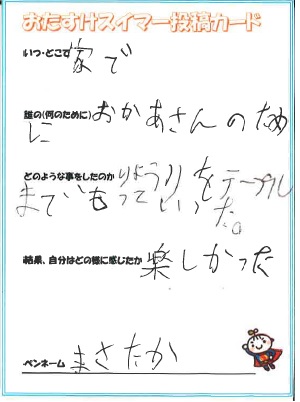 おたすけスイマー投稿カード
いつ・どこで 家で
誰の(何のために) おかあさんのため
に
どのような事をしたのか りょうりをテーブル
までもっていった。
結果、自分はどの様に感じたか 楽しかった
ペンネーム まさたか